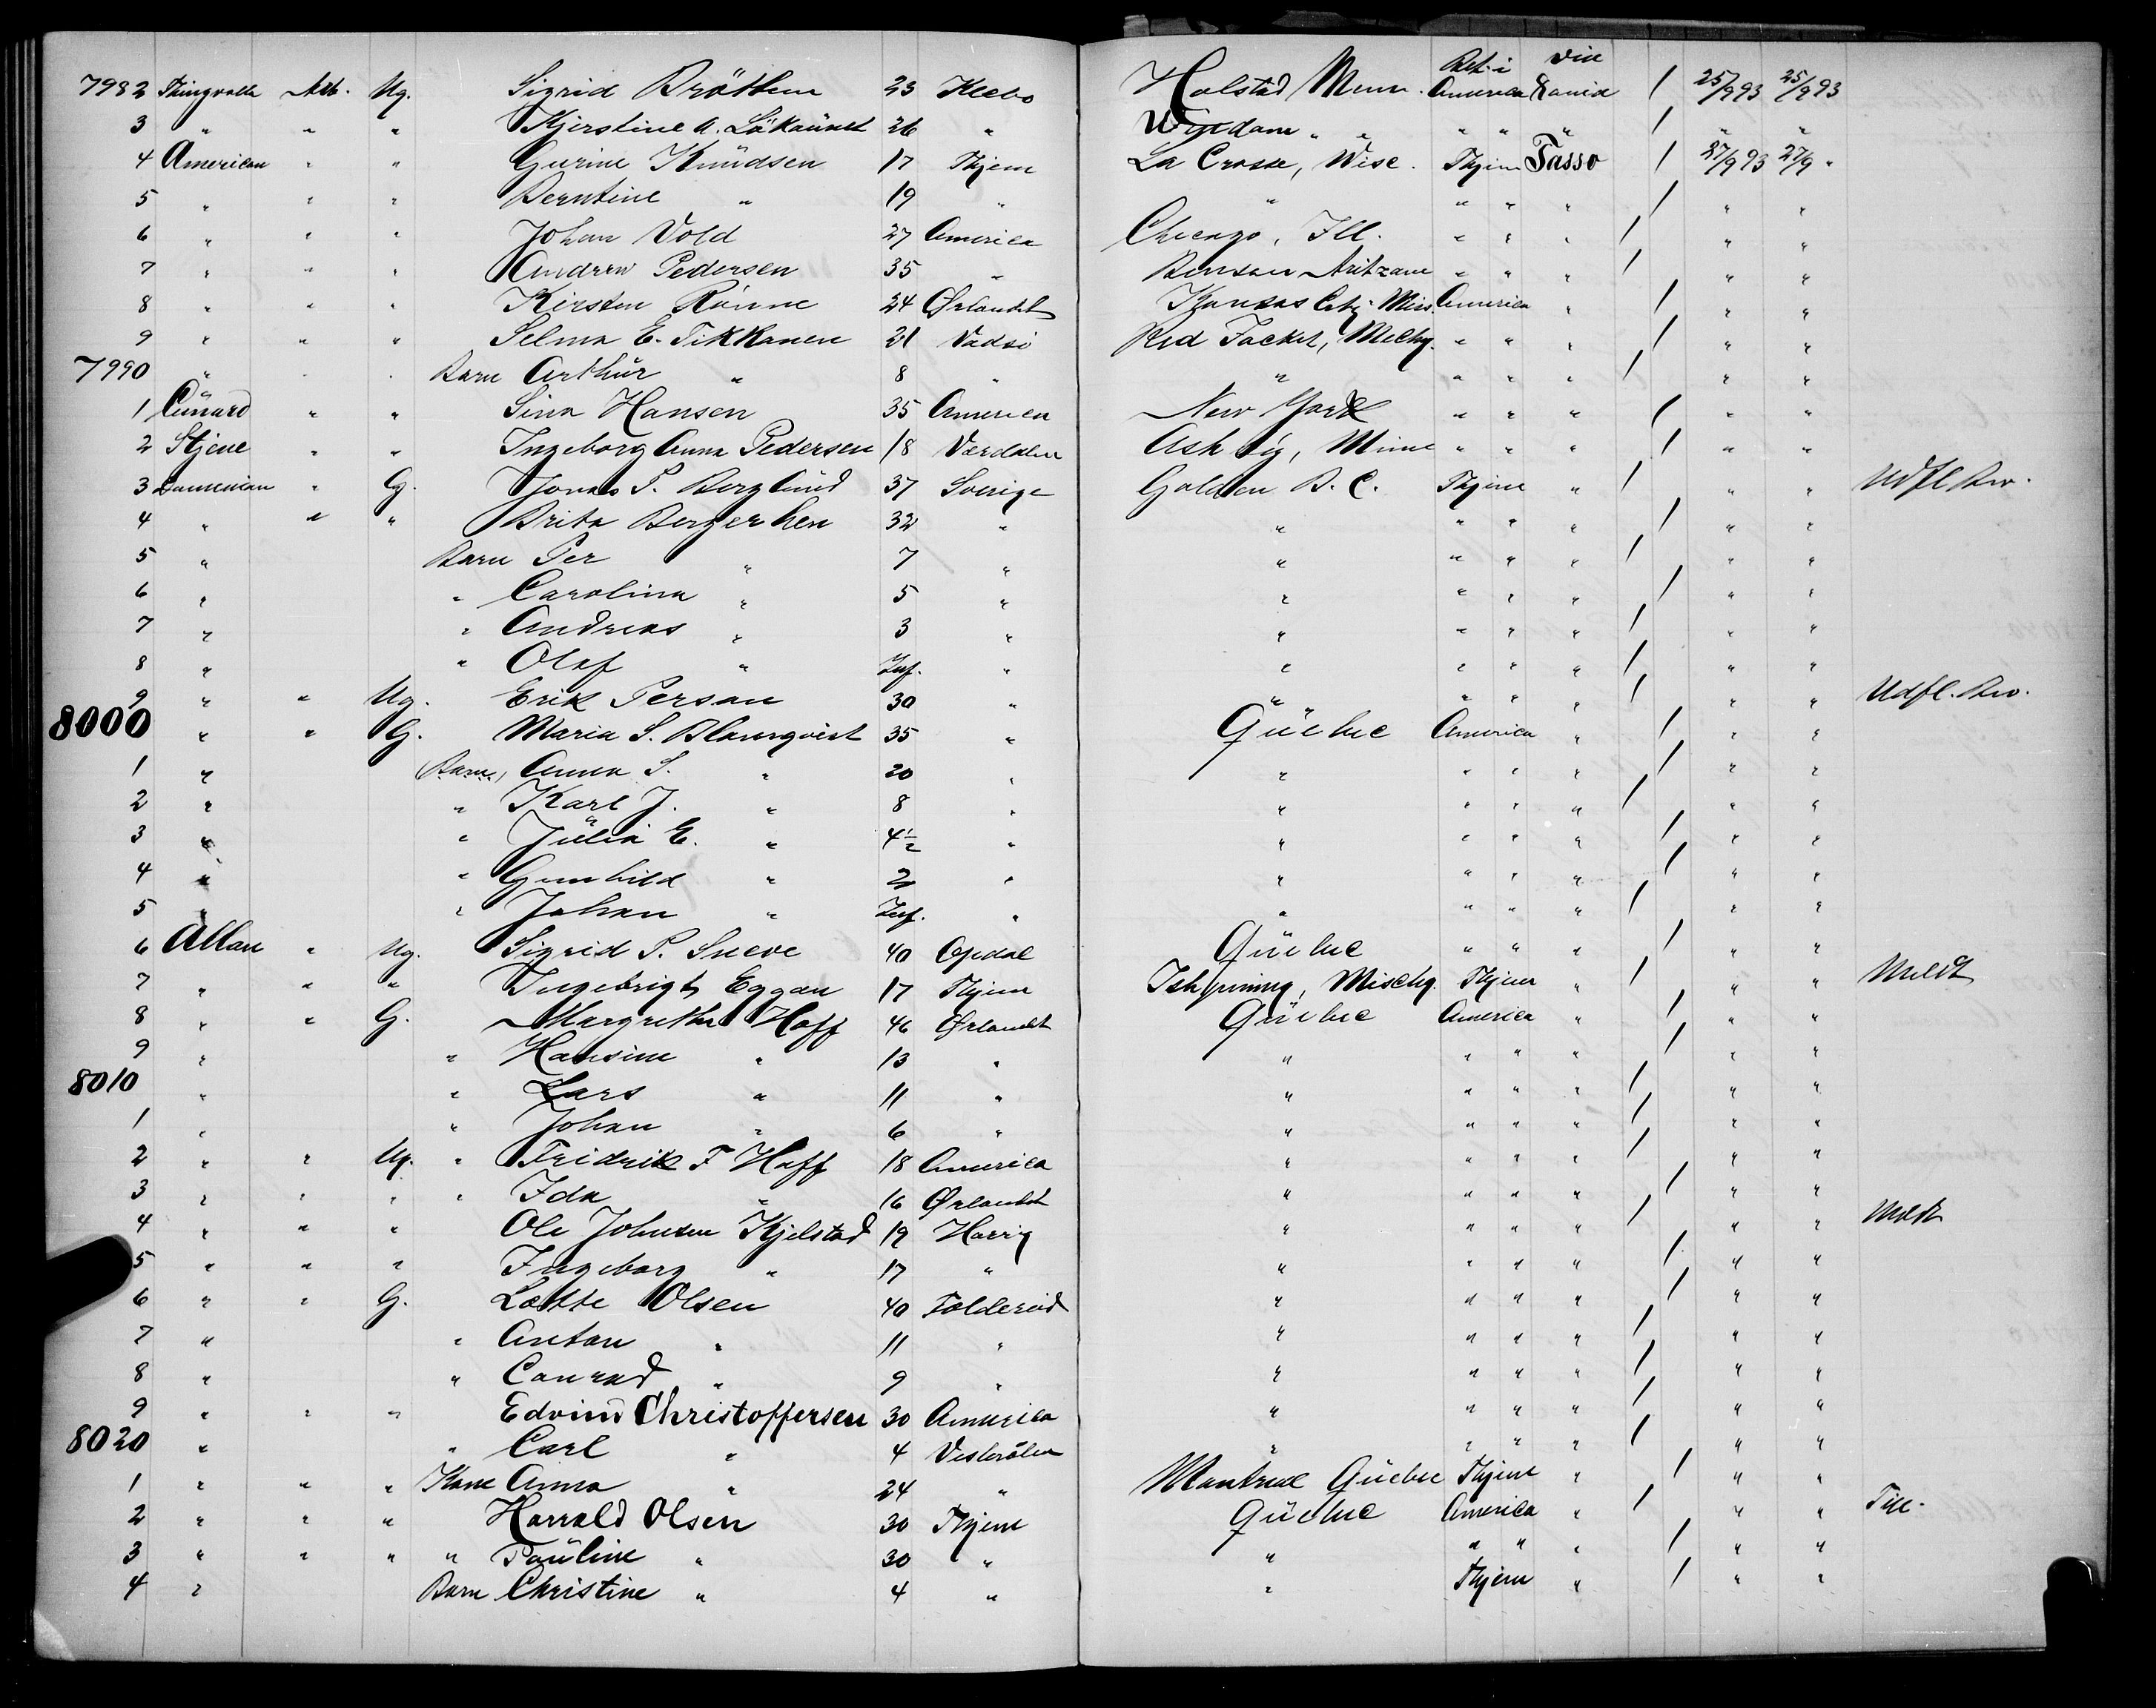 Bet. i vill
7982 Thingvalla Arb. Ug. Sigrid Bröttem 23 Klebo Halstad Minn. America 1 25/9 93 25/9 93
3 " " " Kjerstine A. 26 " Windom " " " " " 1 " "
4 American " " Gurine Knüdsen 17 Thjem La Crosse, Wisc. Thjem Tasso 1 27/9 93 27/9 "
5 " " " Berntine " 19 " " " " " 1 " "
6 " " " Johan Vold 27 America Chicago, Ill. " " " 1 " "
7 " " " Andrew Pedersen 35 " Benson " " " 1 " "
8 " " " Kirsten Rönne 24 Ørlandet Kansas City Miss. America " 1 " "
9 " " " Selma E. Tikkanen 21 Vadsö Red Jacket, Michg. " " " 1 " "
7990 " " " Barn Arthür " 8 " " " " " 1 " "
1 Cünard " " Sina Hansen 35 America New York " " " 1 " "
2 Stjene " " Ingeborg Anna Pedersen 18 Værdalen Ashby, Minn " " " 1 " "
3 Dominion " G. Jonas P. Berglünd 37 Sverige Golden B. C. Thjem " 1 " " Udfl. Bev.
4 " " " Brita Bergerhen 32 " " " " " 1 " "
5 " Barn Per " 7 " " " " " 1 " "
6 " " Carolina " 5 " " " " " 1 " "
7 " " Andreas " 3 " " " " " 1 " "
8 " " Olaf " Inf. " " " " " 1 " "
9 " " Ug. Erik Person 30 " " " " " 1 " " Udfl. Bev.
8000 " " G. Maria S. Blomqvist 35 " Qüebec America " 1 " "
1 " Barn, Anna S. " 20 " " " " " 1 " "
2 " " Karl J. " 8 " " " " " 1 " "
3 " " Jülia E. " 4½ " " " " " 1 " "
4 " " Gunhild " 2 " " " " " 1 " "
5 " " Johan " Inf. " " " " " 1 " "
6 Allan " Ug. Sigrid P. Sneve 40 Opdal Qüebec " " " 1 " "
7 " " " Ingebrigt Eggan 17 Thjem Ishpiming, Mischg. Thjem " 1 " " Meldt
8 " " G. Margrethe Hoff 46 Ørlandet Qüebec America " 1 " "
9 " " Hansine " 13 " " " " " 1 " "
8010 " " Lars " 11 " " " " " 1 " "
1 " " Johan " 6 " " " " " 1 " "
2 " " Ug. " Fridrik F Hoff 18 America " " " " 1 " "
3 " " " " Ida " 16 Ørlandet " " " " 1 " "
4 " " " Ole Johnsen Kjelstad 19 Harrig " " " " 1 " " Meldt
5 " " " Ingeborg " 17 " " " " " 1 " "
6 " " G. Lætte Olsen 40 Foldereid " " " " 1 " "
7 " " Anton " 11 " " " " " 1 " "
8 " " Conrad " 9 " " " " " 1 " "
9 " " " Edvin Christoffersen 30 America " " " " 1 " "
8020 " " Carl " 4 Vesterålen " " " " 1 " "
1 " " " Kone Anna " 24 " Montreal Qüebec Thjem " 1 " "
2 " " " Harrald Olsen 30 Thjem Qüebec America " 1 " " Till.
3 " " " " Paüline " 30 " " " " " 1 " "
4 " Barn Christine " 4 " " Thjem " 1 " "